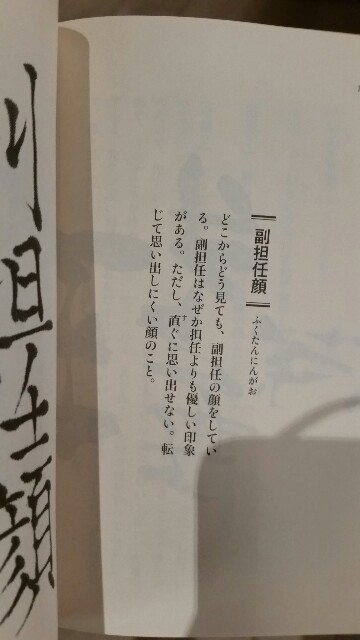 副担任顔
ふくたんにんがお
どこからどう見ても、副担任の顔をしてい
る。副担任はなぜか担任よりも優しい印象
がある。ただし、直ぐに思い出せない。転
じて思い出しにくい顔のこと。
担任顔